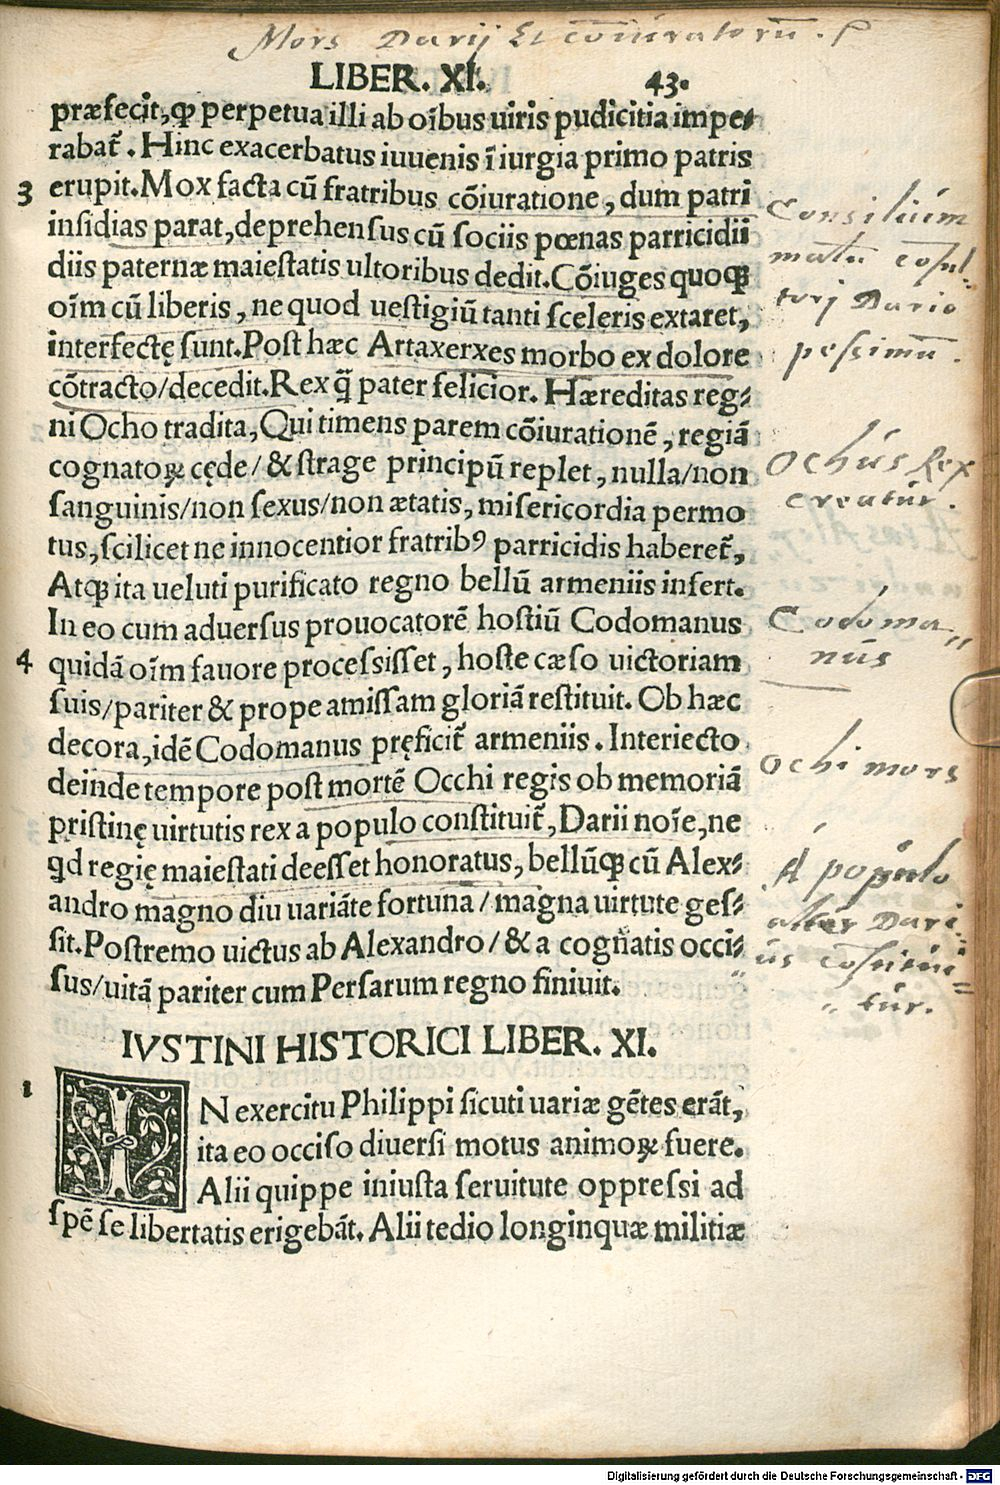 Mors Darij Et coniuratorũ.
LIBER. XI. 43.
præfecit, ꝙ perpetua illi ab oĩbus uiris pudicitia impe⸗
rabat᷑. Hinc exacerbatus iuuenis ĩ iurgia primo patris
3 erupit. Mox facta cũ fratribus cõiuratione, dum patri
inſidias parat, deprehenſus cũ ſociis pœnas parricidii
diis paternæ maieſtatis ultoribus dedit. Cõiuges quoqꝫ
oĩm cũ liberis, ne quod ueſtigiũ tanti ſceleris extaret,
interfectę ſunt. Poſt hæc Artaxerxes morbo ex dolore
cõtracto/decedit. Rex q̃ pater felicior. Hæreditas reg⸗
ni Ocho tradita, Qui timens parem cõiurationẽ, regiã
cognatoꝝ cęde/ & ſtrage principũ replet, nulla/non
ſanguinis/non ſexus/non ætatis, miſericordia permo
tus, ſcilicet ne innocentior fratribꝰ parricidis haberet᷑,
Atqꝫ ita ueluti purificato regno bellũ armeniis infert.
In eo cum aduerſus prouocatorẽ hoſtiũ Codomanus
4 quidã oĩm fauore proceſſiſſet, hoſte cæſo uictoriam
ſuis/pariter & prope amiſſam gloriã reſtituit. Ob hæc
decora, idẽ Codomanus pręficit᷑ armeniis. Interiecto
deinde tempore poſt mortẽ Occhi regis ob memoriã
priſtinę uirtutis rex a populo conſtituit᷑, Darii noĩe, ne
qd regię maieſtati deeſſet honoratus, bellũqꝫ cũ Alex⸗
andro magno diu uariãte fortuna/magna uirtute geſ⸗
ſit. Poſtremo uictus ab Alexandro/ & a cognatis occi⸗
ſus/uitã pariter cum Perſarum regno finiuit.
IVSTINI HISTORICI LIBER. XI.
1 IN exercitu Philippi ſicuti uariæ gẽtes erãt,
ita eo occiſo diuerſi motus animoꝝ fuere.
Alii quippe iniuſta ſeruitute oppreſſi ad
ſpẽ ſe libertatis erigebãt. Alii tedio longinquæ militiæ
Consilium
datũ cõsul⸗
torj Dario
pessimũ.
Ochus Rex
creatur.
Codoma⸗
nus
Ochi mors
A populo
alter Dari⸗
us cõstitui⸗
tur.
Digitalisierung gefördert durch die Deutsche Forschungsgemeinschaft - DFG